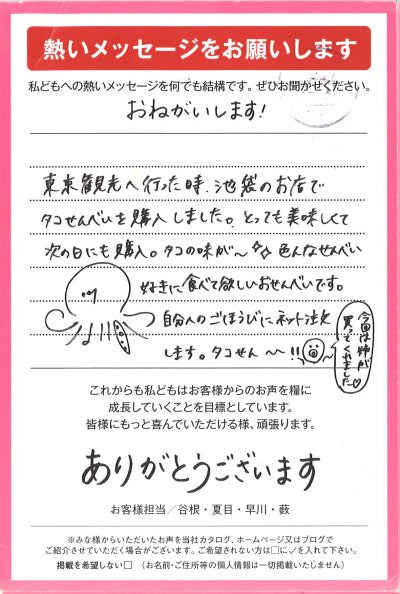 熱いメッセージをお願いします
私どもへの熱いメッセージを何でも結構です。ぜひお聞かせください。
おねがいします!
東京観光へ行った時、池袋のお店で
タコせんべいを購入しました。とっても美味しくて
次の日にも購入。タコの味が〜 色んなせんべい
好きに食べて欲しいおせんべいです。
自分へのごほうびにネット注文
します。タコせん 〜!!
今回は姉が
買ってくれました♡
これからも私どもはお客様からのお声を糧に
成長していくことを目標としています。
皆様にもっと喜んでいただける様、頑張ります。
ありがとうございます
お客様担当／谷根・夏目・早川・薮
※みな様からいただいたお声を当社カタログ、ホームページ又はブログで
ご紹介させていただく場合がございます。ご希望されない方は□に✓を入れて下さい。
掲載を希望しない□ （お名前・ご住所等の個人情報は一切掲載いたしません）